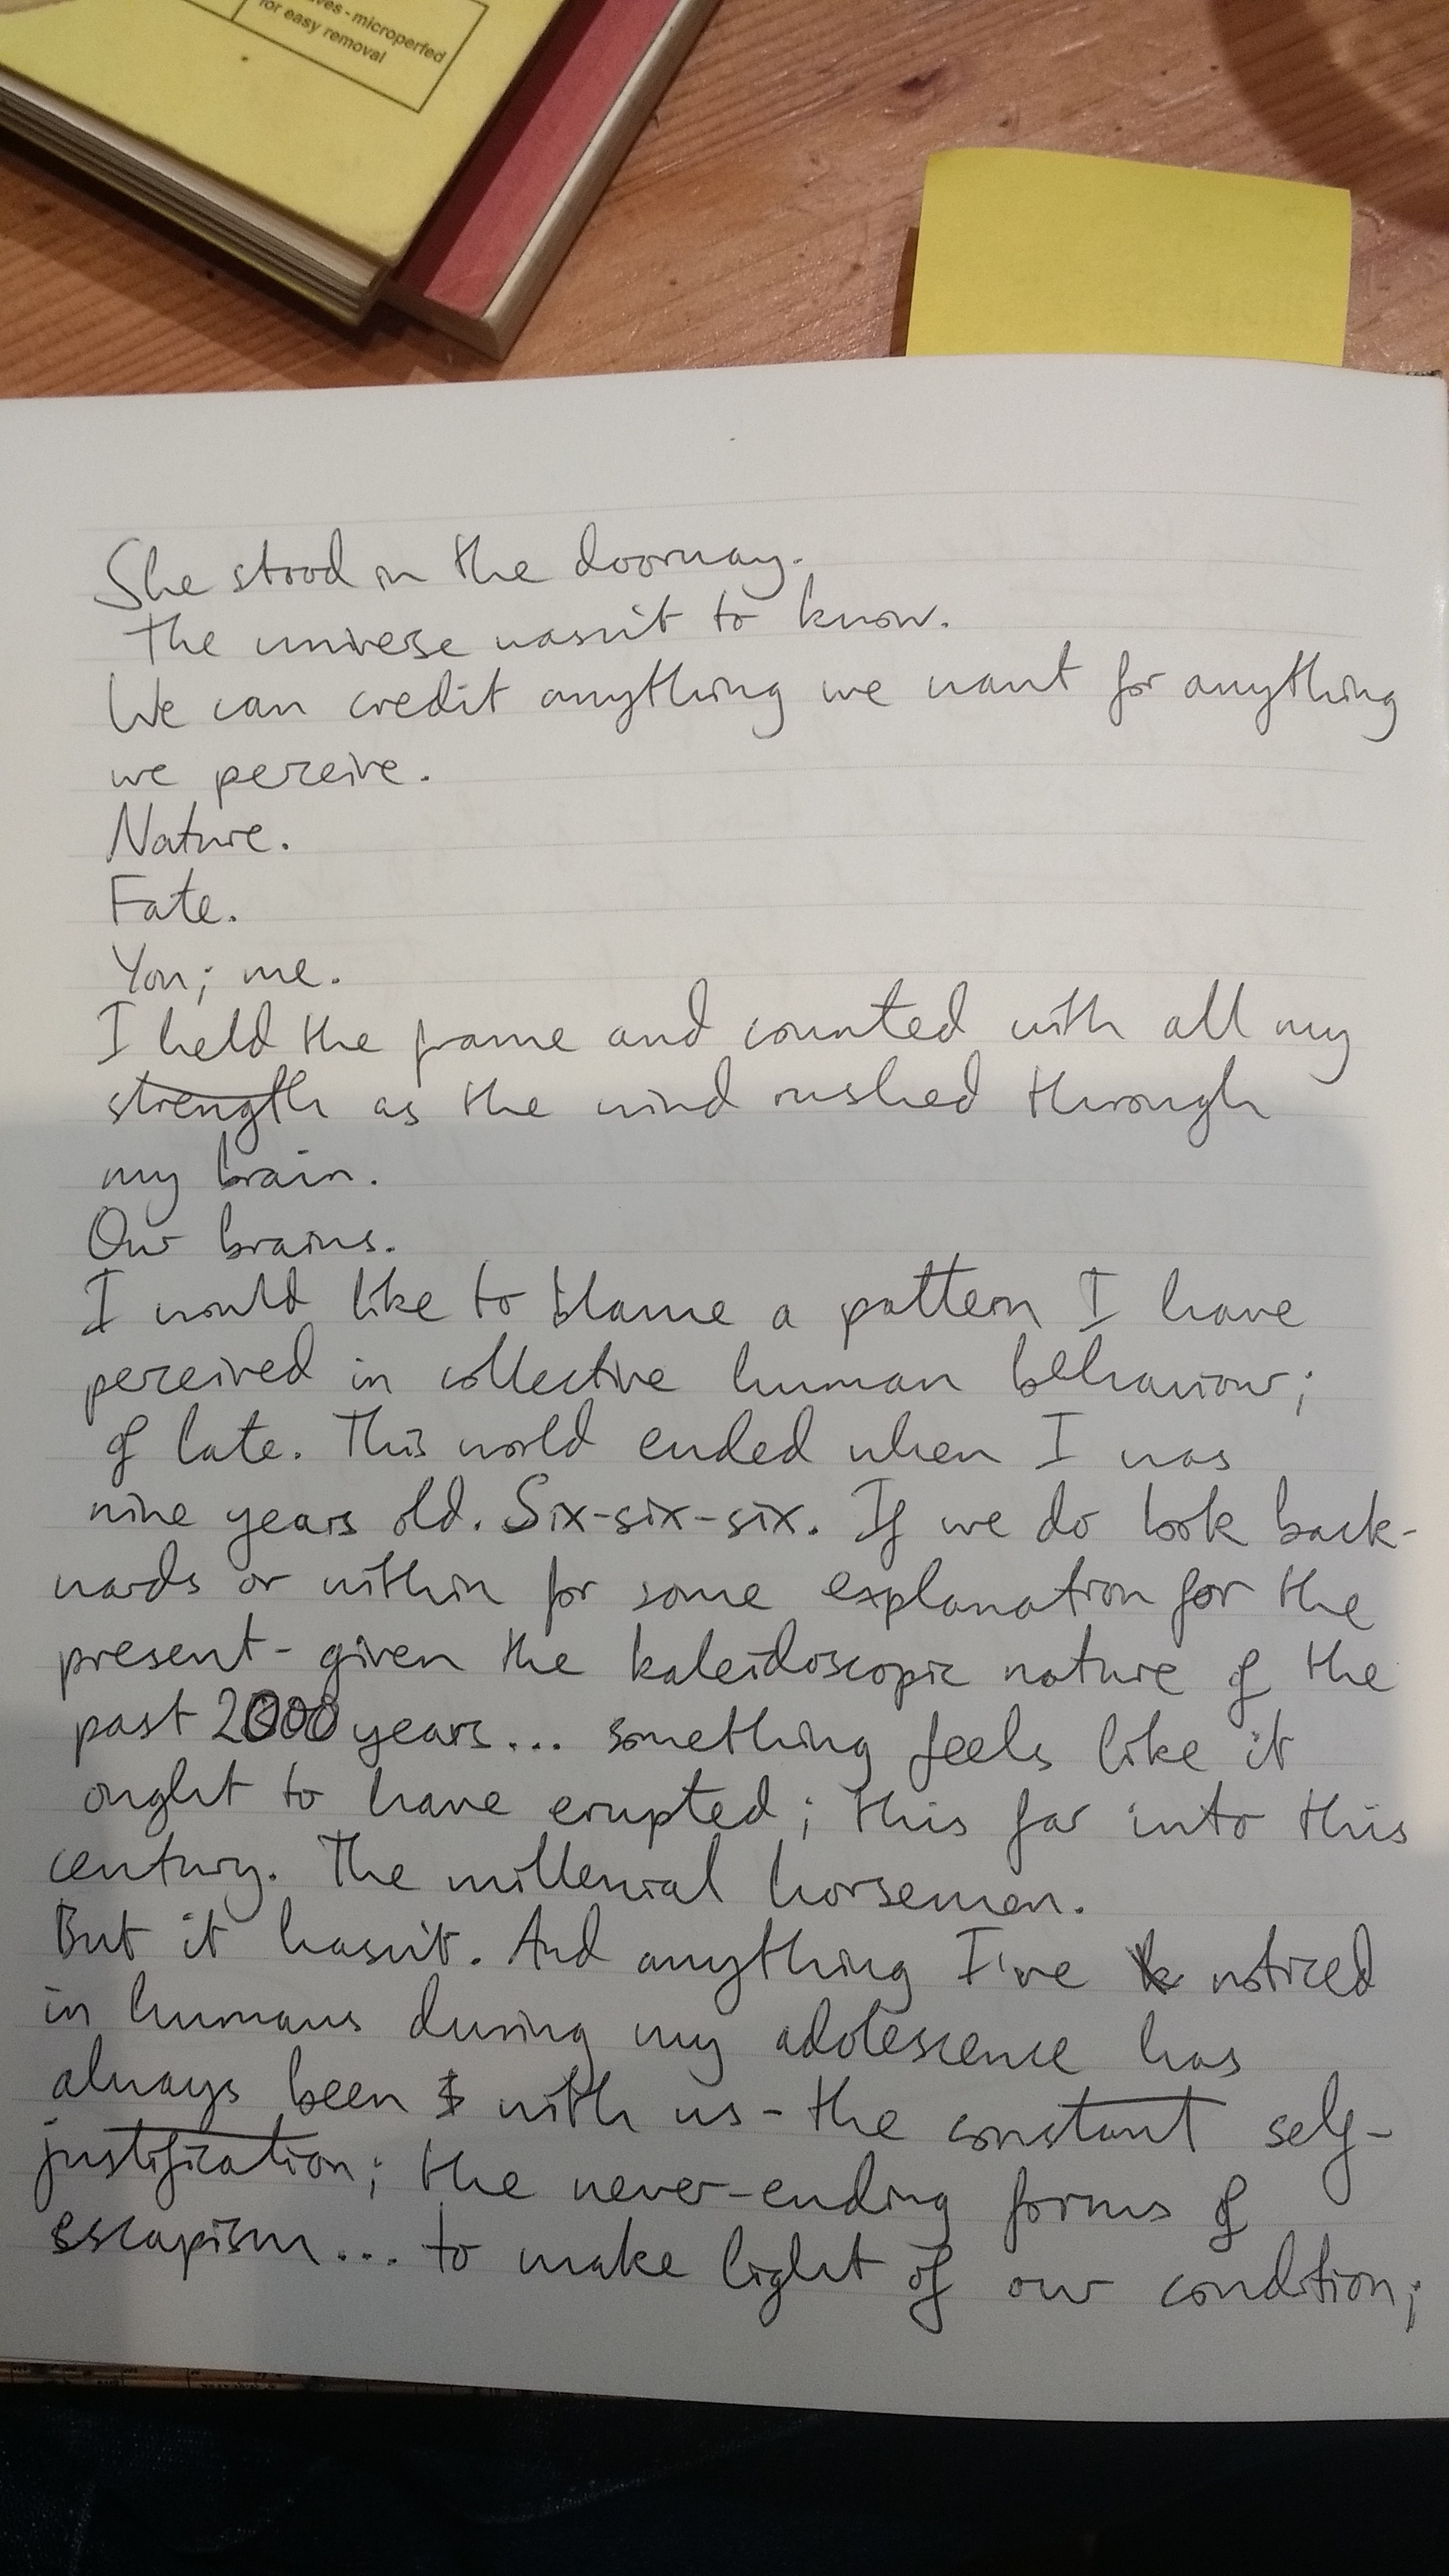 ves - microperfed
for easy removal
She stood in the doorway.
The universe wasn't to know.
We can credit anything we want for anything
we perceive.
Nature.
Fate.
You; me.
I held the frame and counted with all my
strength as the wind rushed through
my brain.
Our brains.
I would like to blame a pattern I have
perceived in collective human behaviour;
of late. This world ended when I was
nine years old. Six-six-six. If we do look back-
wards or within for some explanation for the
present - given the kaleidoscopic nature of the
past 2000 years... something feels like it
ought to have erupted; this far into this
century. The millenial horsemen.
But it hasn't. And anything I've noticed
in humans during my adolescence has
always been with us - the constant self-
justification; the never-ending forms of
escapism... to make light of our condition;